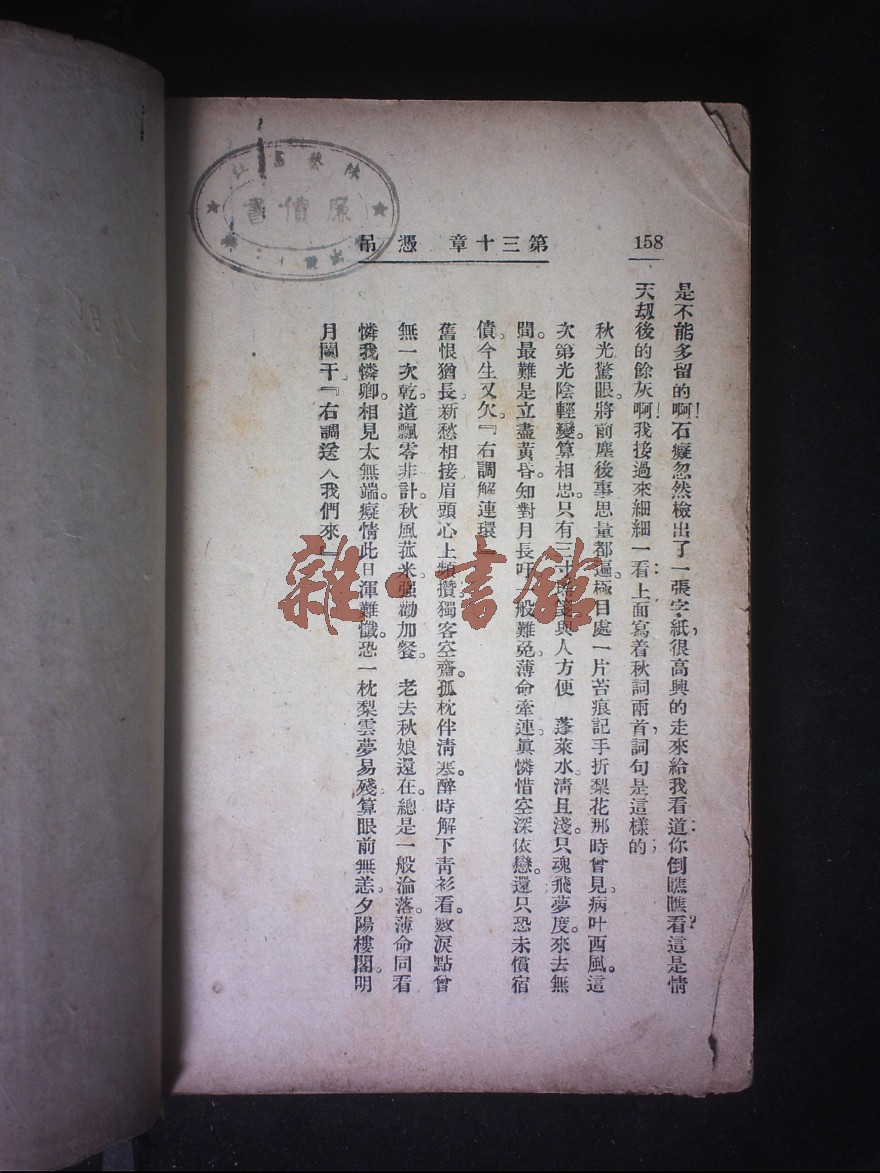 158
第三十章 憑吊
是不能多留的啊!石癡忽然檢出了一張字紙,很高興的走來給我看道:你倒瞧瞧看?這是情
天劫後的餘灰啊!我接過來細細一看:上面寫着秋詞兩首,詞句是這樣的;
秋光驚眼。將前塵後事思量都遍。極目處一片苔痕記手折梨花那時曾見。病叶西風。這
次第光陰輕變。算相思。只有三寸 與人方便 蓬萊水清且淺。只魂飛夢度。來去無
間。最難是立盡黃昏。知對月長吁一般難免。薄命牽連。眞憐惜空深依戀。還只恐未償宿
債今生又欠。『右調解連環』
舊恨猶長。新愁相接眉頭心上頻攢獨客空齋。孤枕伴淸寒。醉時解下靑衫看。數淚點曾
無一次乾。道飄零非計。秋風菰米。强勸加餐。 老去秋娘還在。總是一般淪落。薄命同看
憐我憐卿。相見太無端。癡情此日渾難懺。恐一枕梨雲夢易殘。算眼前無恙。夕陽樓閣。明
月闌干。『右調送入我們來』
廉價書
雜·書館